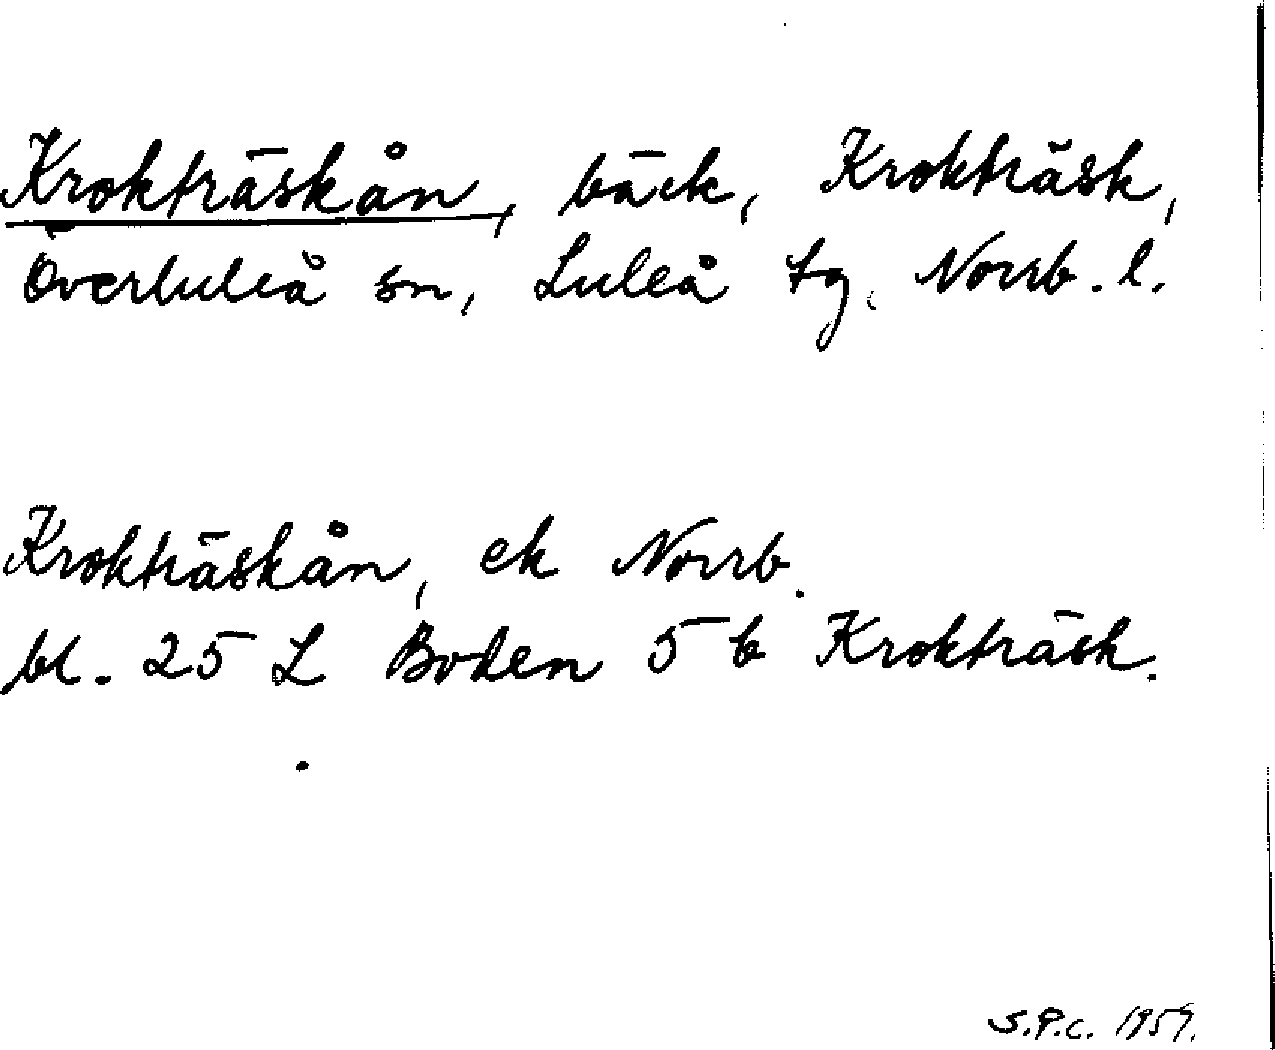 Krokträskån, bäck, Krokträsk,
Överluleå sn, Luleå tg, Norrb. l.
Krokträskån, ek Norrb.
bl. 25 L Boden 5 b Krokträsk.
S.P.C. 1959.